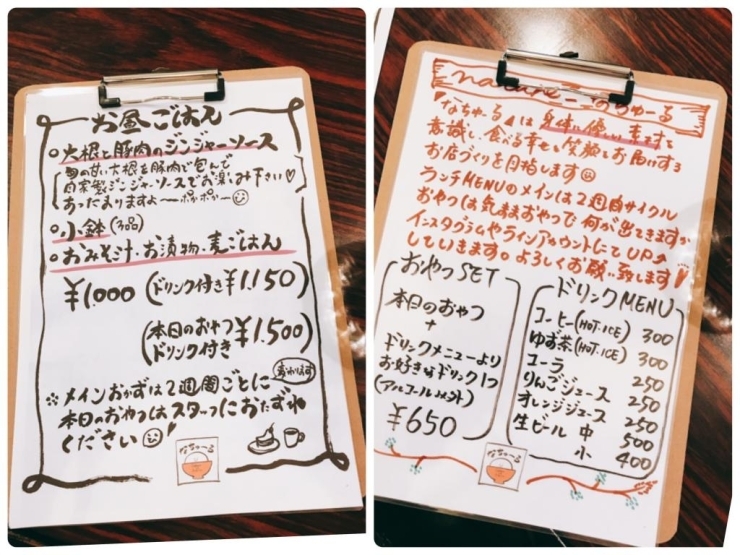 お昼ごはん
○大根と豚肉のジンジャーソース
旬の甘い大根を豚肉で包んで
自家製ジンジャーソースでお楽しみ下さい♡
あったまりますよ〜ポカポカー
○小鉢(3品)
○おみそ汁・お漬物・麦ごはん
¥1.000 (ドリンク付き¥1.150)
(本日のおやつ
ドリンク付き ¥1.500)
変わります
※メインおかずは2週間ごとに
本日のおやつはスタッフにおたずね
ください!
なちゅーる
nature なちゅーる
『なちゅーる』は身体に優しい素材を
意識し、食べる幸せと笑顔をお届けする
お店づくりを目指します
ランチMENUのメインは2週間サイクル
おやつは気ままおやつで何が出てきますか
インスタグラムやラインアカウントにてUP
していきます。よろしくお願い致します
おやつSET
本日のおやつ
+
ドリンクメニューより
お好きなドリンク1つ
(アルコールメント)
¥650
ドリンクMENU
コーヒー(HOT・ICE) 300
ゆず茶(HOT・ICE) 300
コーラ 250
りんごジュース 250
オレンジジュース 250
生ビール 中 500
小 400
なちゅーる